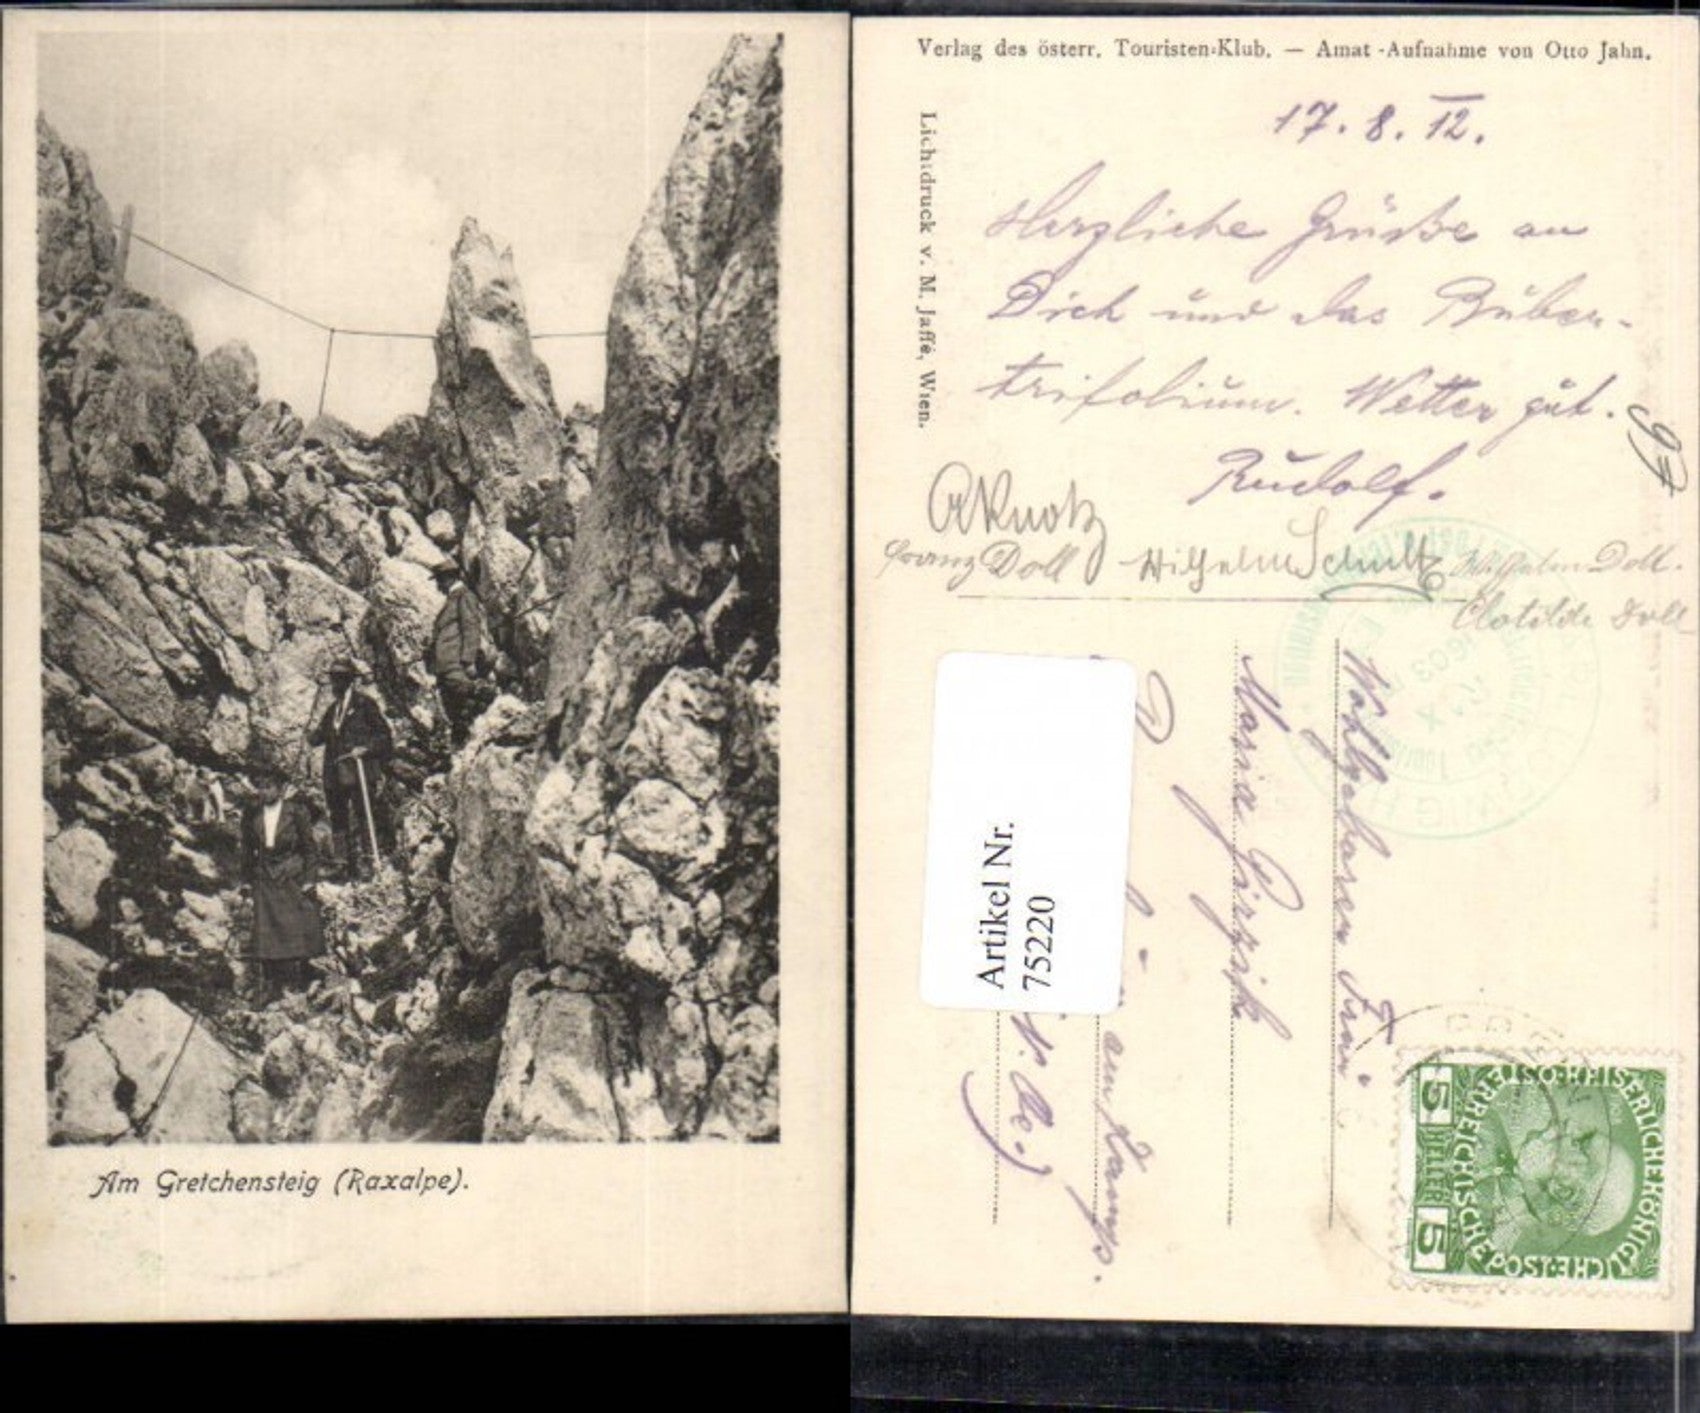 Am Gretchensteig (Raxalpe).
Verlag des österr. Touristen-Klub. — Amat.-Aufnahme von Otto Jahn.
Lichtdruck v. M. Jaffé, Wien.
17. 8. 12.
Herzliche Grüße an
Dich und das Büber-
trifolium. Wetter gut.
Rudolf.
97
Franz Doll
Wilhelm Schultz
Wilhelm Doll.
Clotilde Doll
Wohlgeboren Frau
Maria
am Kamp.
Artikel Nr.
75220
KAISERLICHE KÖNIGLICHE
ÖSTERREICHISCHE POST
5 HELLER 5